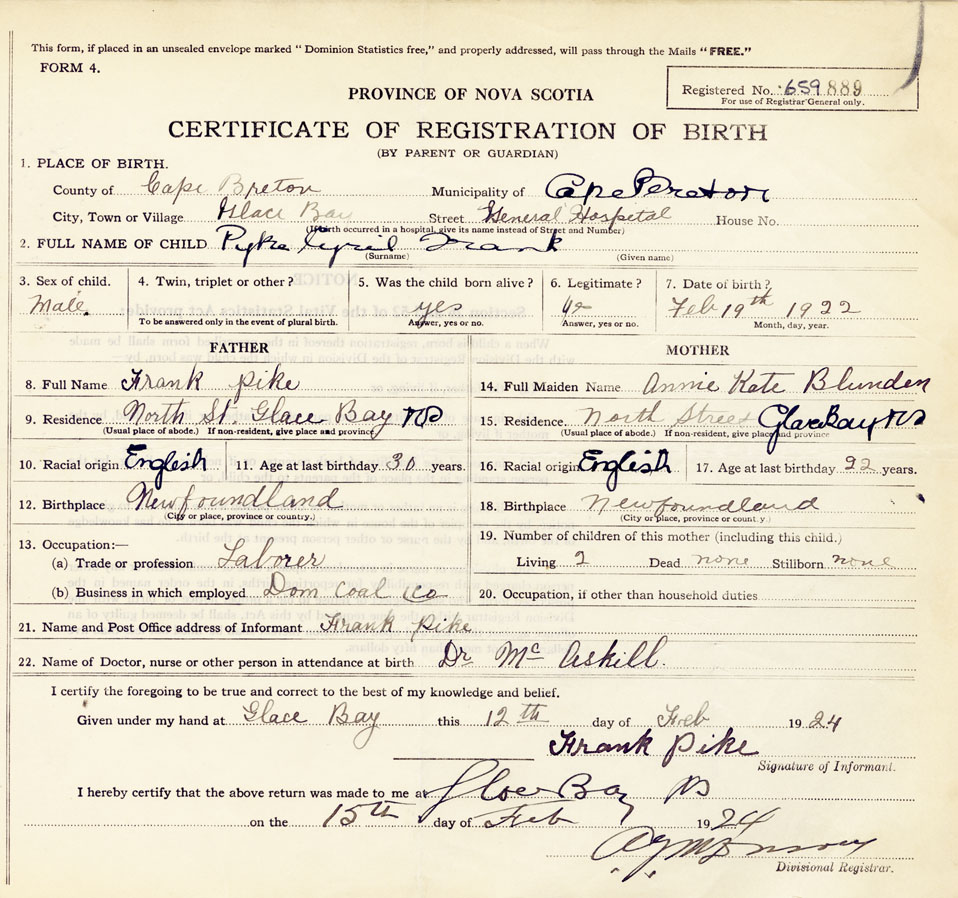 This form, if placed in an unsealed envelope marked " Dominion Statistics free," and properly addressed, will pass through the Mails "FREE."
FORM 4.
Registered No. 659889
For use of Registrar General only.
PROVINCE OF NOVA SCOTIA
CERTIFICATE OF REGISTRATION OF BIRTH
(BY PARENT OR GUARDIAN)
1. PLACE OF BIRTH.
County of Cape Breton Municipality of Cape Breton
City, Town or Village Glace Bay Street General Hospital House No.
(If birth occurred in a hospital, give its name instead of Street and Number)
2. FULL NAME OF CHILD Pyke Cyril Frank
(Surname) (Given name)
3. Sex of child. 4. Twin, triplet or other? 5. Was the child born alive? 6. Legitimate? 7. Date of birth?
Male. yes Feb 19th 1922
To be answered only in the event of plural birth. Answer, yes or no. Answer, yes or no. Month, day, year.
FATHER MOTHER
8. Full Name Frank pike 14. Full Maiden Name Annie Kate Blunden
9. Residence North St. Glace Bay NS 15. Residence. North Street Glace Bay NS
(Usual place of abode.) If non-resident, give place and province (Usual place of abode.) If non-resident, give place and province
10. Racial origin English 11. Age at last birthday 30 years. 16. Racial origin English 17. Age at last birthday 22 years.
12. Birthplace Newfoundland 18. Birthplace Newfoundland
(City or place, province or country.) (City or place, province or country.)
13. Occupation:— 19. Number of children of this mother (including this child.)
(a) Trade or profession Laborer Living 2 Dead none Stillborn none
(b) Business in which employed Dom Coal Co 20. Occupation, if other than household duties
21. Name and Post Office address of Informant Frank Pike
22. Name of Doctor, nurse or other person in attendance at birth Dr McAskill.
I certify the foregoing to be true and correct to the best of my knowledge and belief.
Given under my hand at Glace Bay this 12th day of Feb 1924
Frank Pike
Signature of Informant.
I hereby certify that the above return was made to me at Glace Bay
on the 15th day of Feb 1924
Divisional Registrar.